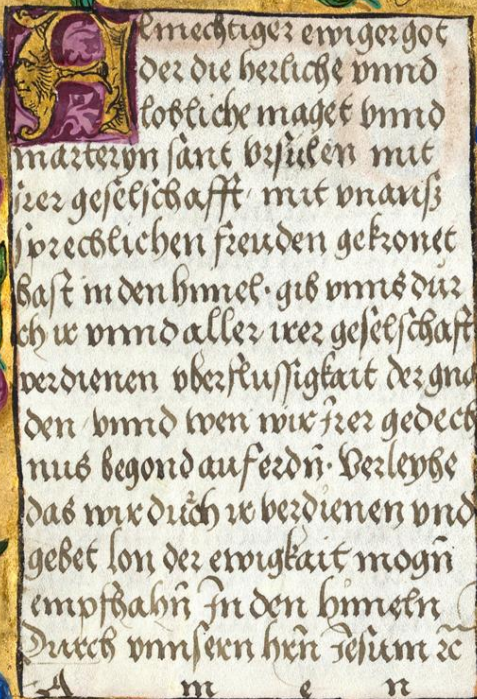 Almechtiger ewiger got
der die herliche vnnd
lobliche maget vnnd
marteryn sant vrsulen mit
jrer geselschafft / mit vnauß
sprechlichen freuden gekronet
hast in den himel · gib vnns dur
ch ir vnnd aller irer geselschaft
verdienen vberflussigkait der gna
den / vnnd wen wir Jrer gedech
nus begond auf erdn̄ · Verleyhe
das wir durch ir verdienen vnd
gebet lon der ewigkait mogn̄
empfhahn̄ Jn den himeln
Durch vnnsern hrn̄ Jesum ꝛc̄
A m e n